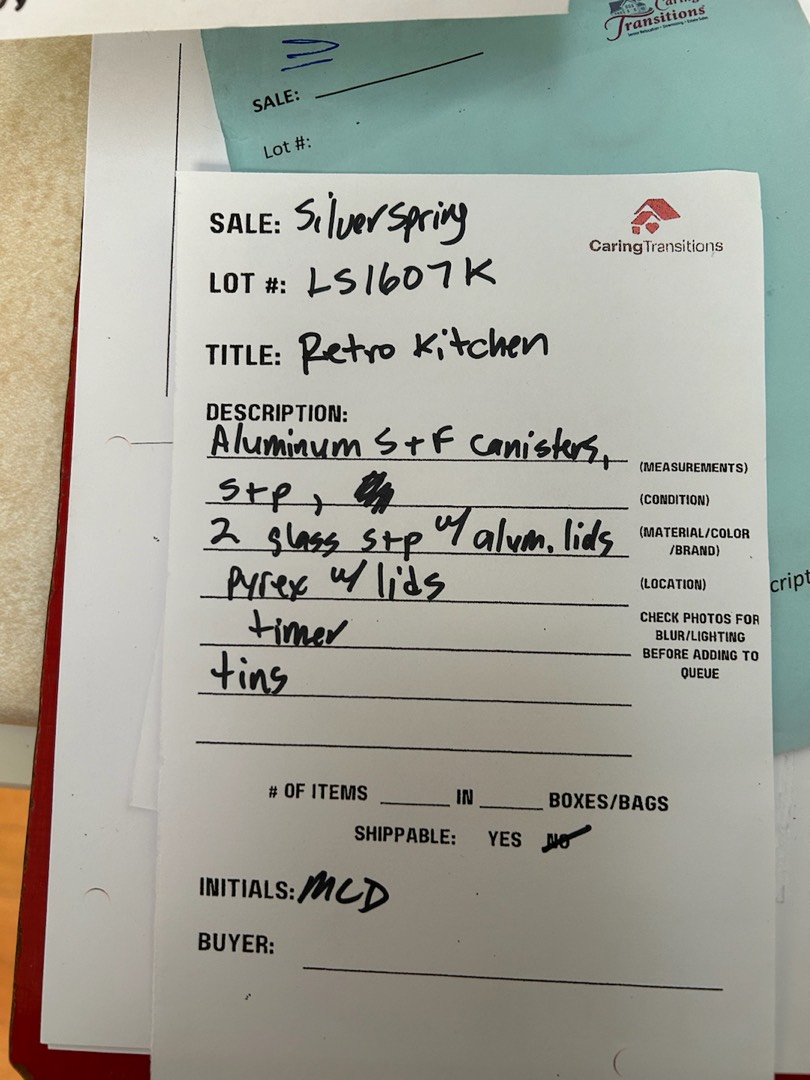 Caring
Transitions
SALE:
Lot #:
SALE: Silverspring
CaringTransitions
LOT #: LS1607K
TITLE: Retro Kitchen
DESCRIPTION:
Aluminum S+F canisters,
(MEASUREMENTS)
S+p,
(CONDITION)
2 glass s+p w/ alum. lids
(MATERIAL/COLOR
/BRAND)
pyrex w/ lids
(LOCATION)
timer
CHECK PHOTOS FOR
BLUR/LIGHTING
BEFORE ADDING TO
QUEUE
tins
# OF ITEMS ______ IN ______ BOXES/BAGS
SHIPPABLE: YES NO
INITIALS: MCD
BUYER: